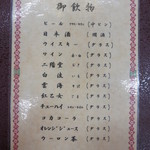 御飲物
ビール
日本酒
ウイスキー (グラス)
ワイン (グラス)
二階堂 (グラス)
白波 (グラス)
雲海 (グラス)
紅乙女 (グラス)
チューハイ (グラス)
コカコーラ (グラス)
オレンジジュース (グラス)
ウーロン茶 (グラス)